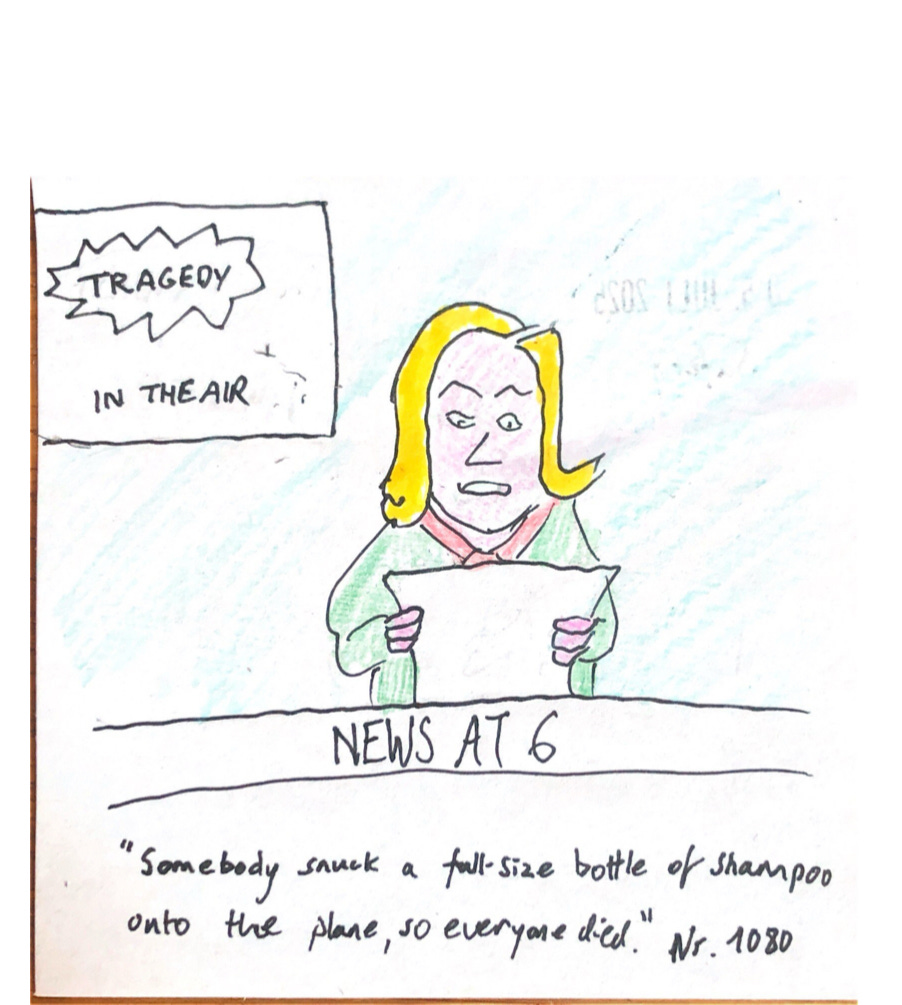 TRAGEDY
IN THE AIR
NEWS AT 6
"Somebody snuck a full-size bottle of shampoo
onto the plane, so everyone died." Nr. 1080